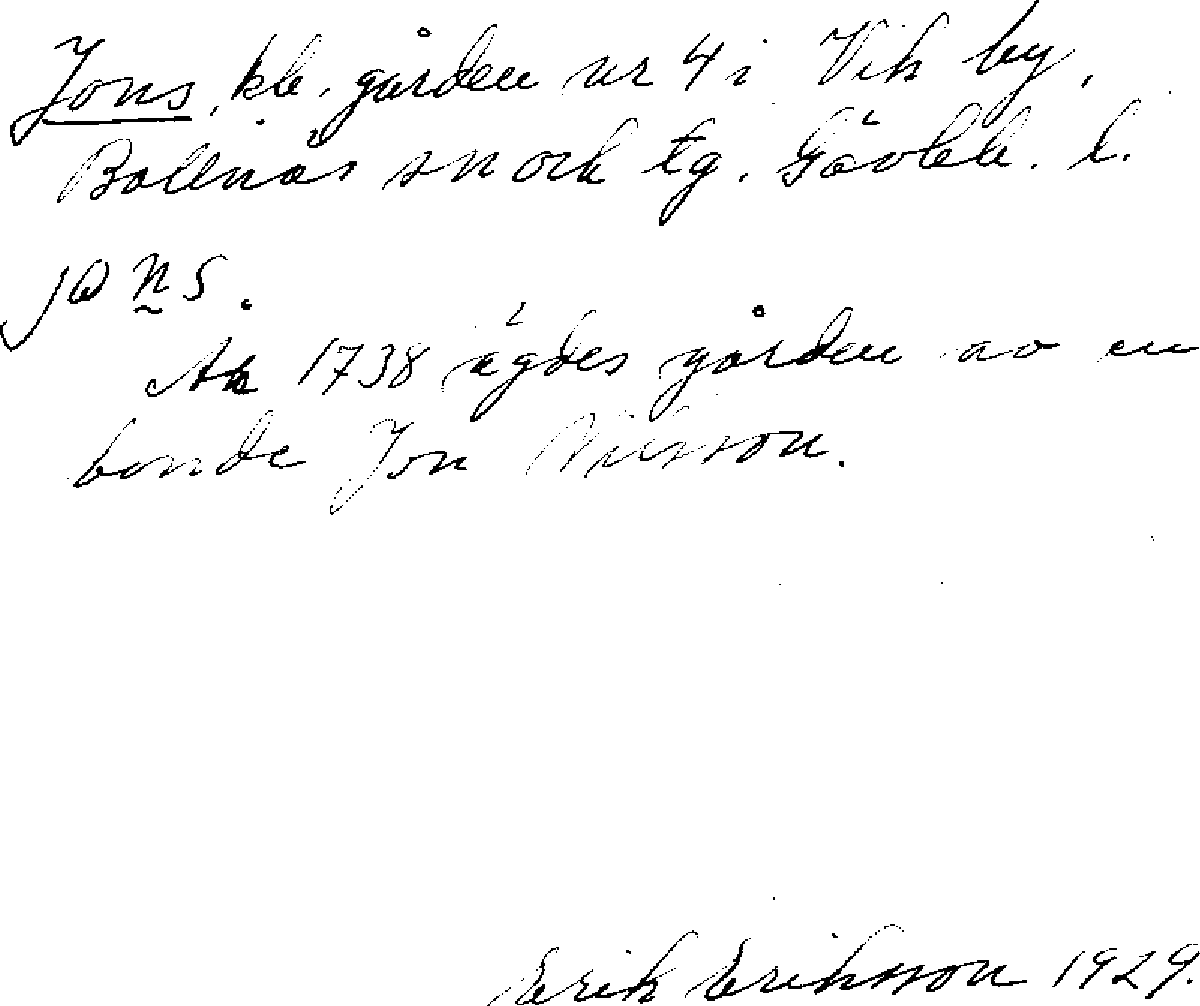 Jons, kb. gården nr 4 i Vik by,
Bollnäs sn och tg. Gävleb. l.
jons.
År 1738 ägdes gården av en
bonde Jon Nilsson.
Erik Eriksson 1929.